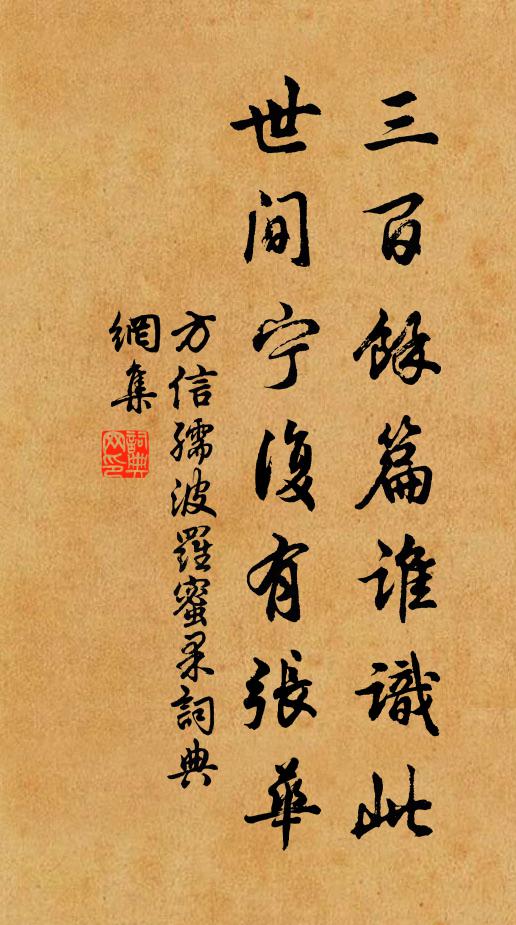 三百餘篇誰識此
世间宁復有張華
方信孺波羅蜜果詞典
網集
詞典
网印